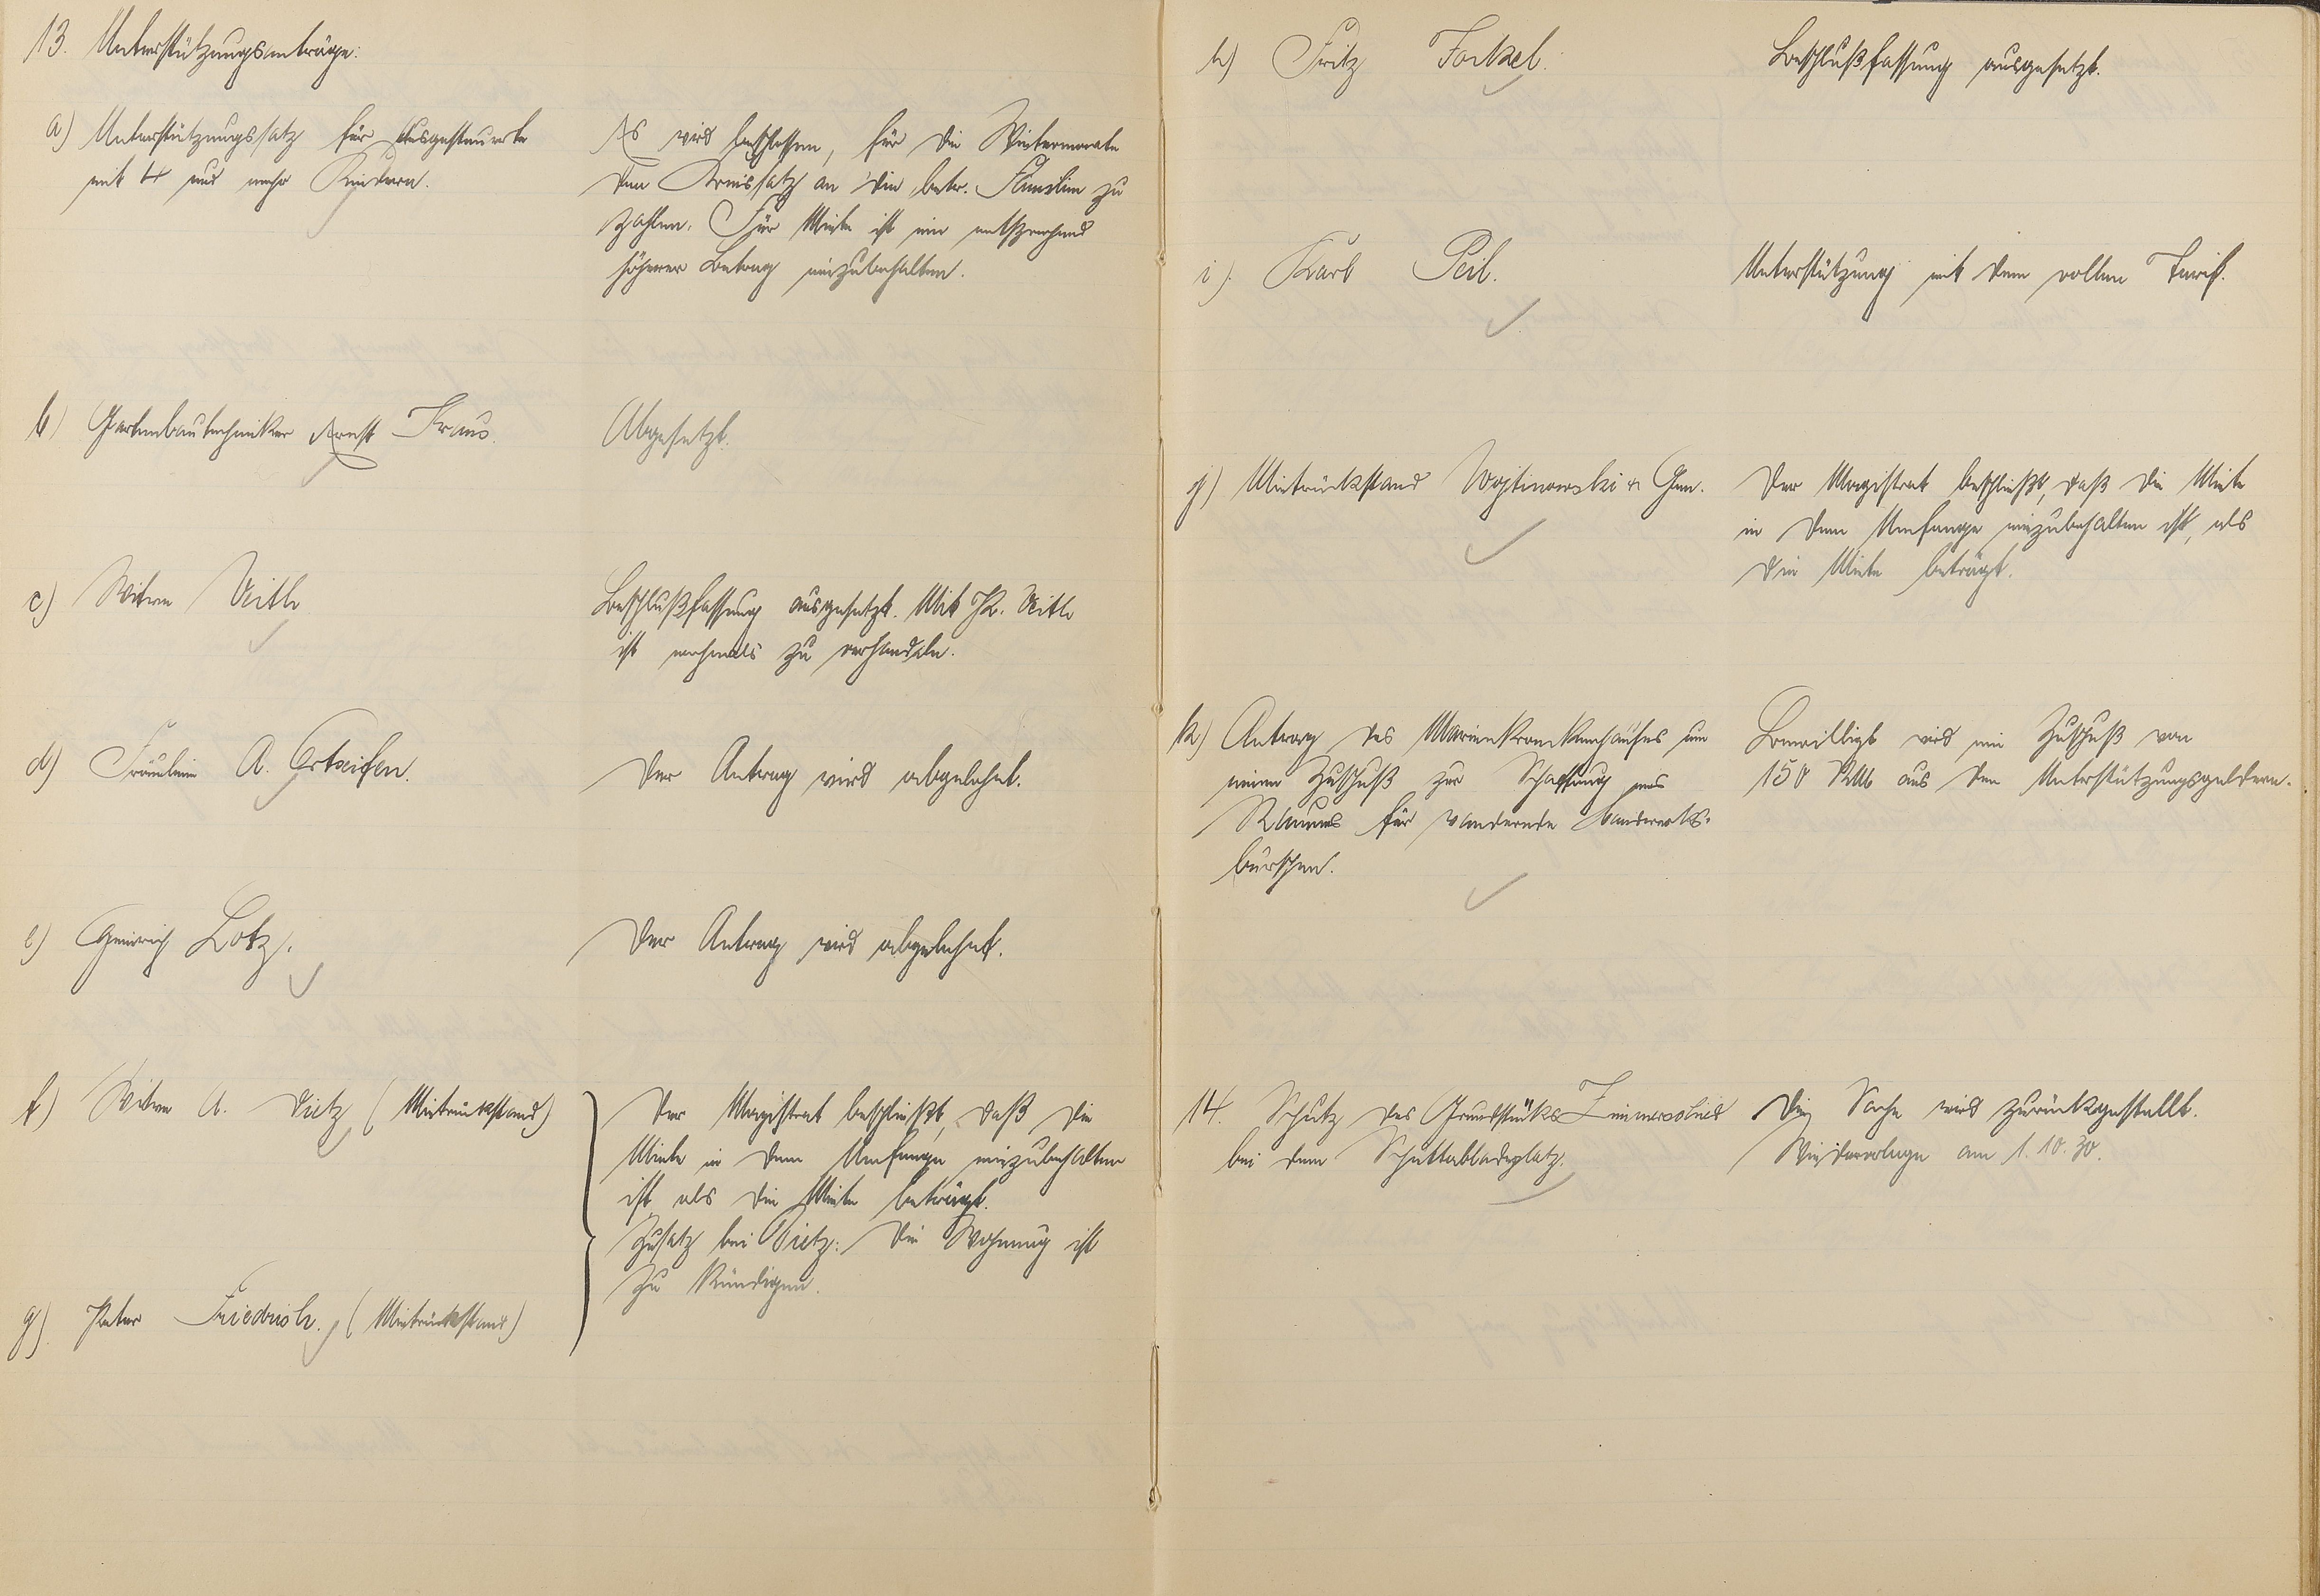 13. Unterstützungsanträge:
a) Unterstützungssatz für Ausgesteuerte
mit 4 und mehr Kindern.
Es wird beschlossen, für die Wintermonate
den Kreissatz an die betr. Familien zu
zahlen. Für Miete ist ein entsprechend
höherer Betrag einzubehalten.
b) Gartenbautechniker Ernst Kraus.
Abgesetzt.
c) Witwe Veith
Beschlußfassung ausgesetzt. Mit Fr. Veith
ist nochmals zu verhandeln.
d) Fräulein A. Ortseifen.
Der Antrag wird abgelehnt.
e) Heinrich Lotz.
Der Antrag wird abgelehnt.
f) Witwe A. Dietz (Mietrückstand)
Der Magistrat beschließt, daß die
Miete in dem Umfange einzubehalten
ist als die Miete beträgt.
Zusatz bei Dietz: Die Wohnung ist
zu kündigen.
g) Peter Friedrich. (Mietrückstand)
h) Fritz Forkel.
Beschlußfassung ausgesetzt.
i) Karl Peil.
Unterstützung mit dem vollen Tarif.
j) Mietrückstand Wojtinowski u. Gen.
Der Magistrat beschließt, daß die Miete
in dem Umfange einzubehalten ist, als
die Miete beträgt.
k) Antrag des Marienkrankenhauses um
einen Zuschuß zur Schaffung eines
Raumes für wandernde Handwerks-
burschen.
Bewilligt wird ein Zuschuß von
150 RM aus den Unterstützungsgeldern.
14. Schutz des Grundstücks Zimmerschied
bei dem Schuttabladeplatz.
Die Sache wird zurückgestellt.
Wiedervorlage am 1.10.30.